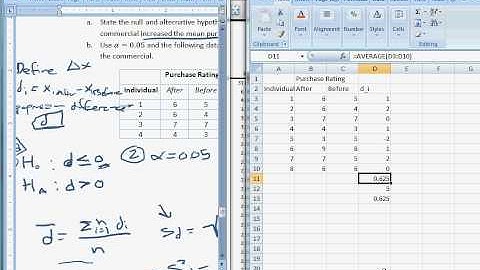 a. State the null and alternative hypoth
commercial increased the mean pur
b. Use α = 0.05 and the following dat
the commercial.
Purchase Rating
Individual After Before
1 6 5
2 6 4
3 7 7
4 4 3
Define Δx
di = xi,after - xi,before
difference
d
H₀ : d ≤ 0
Hₐ : d > 0
② α=0.05
d̄ = Σⁿi=1 di
n
Sd = √
Clipboard
D11
=AVERAGE(D3:D10)
A B C D E F
1 Purchase Rating
2 Individual After Before d_i
3 1 6 5 1
4 2 6 4 2
5 3 7 7 0
6 4 4 3 1
7 5 3 5 -2
8 6 9 8 1
9 7 7 5 2
10 8 6 6 0
11 0.625
12 5
13 0.625
14
15
16
17
18